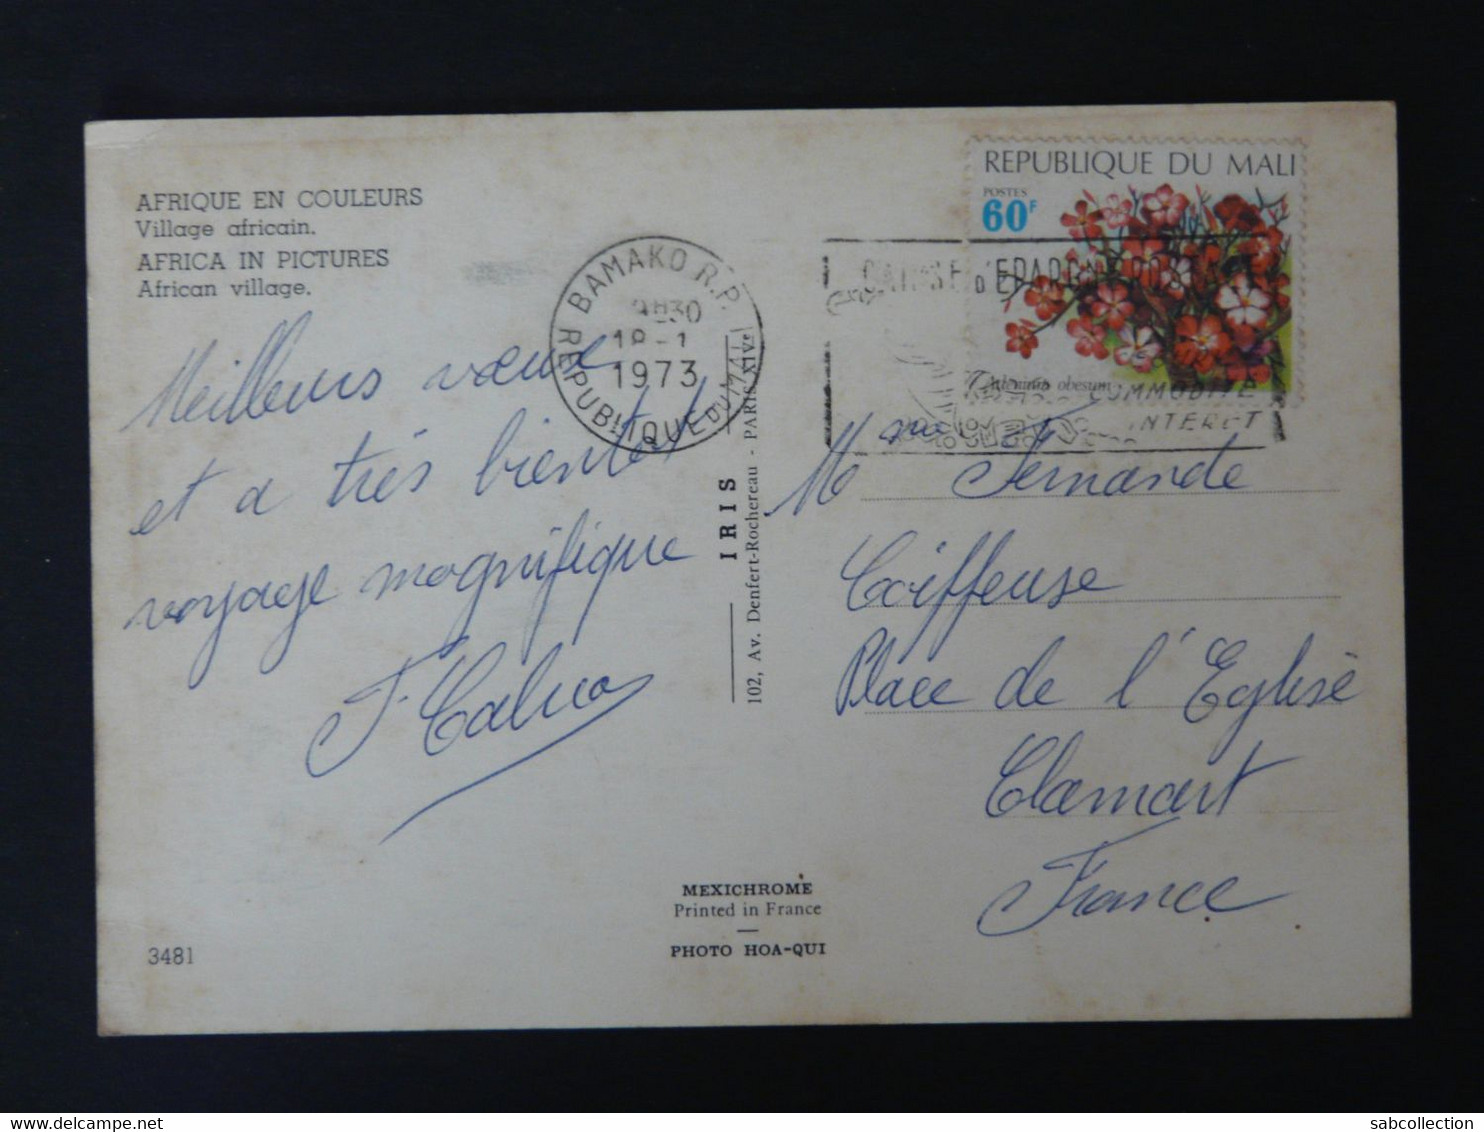 AFRIQUE EN COULEURS
Village africain.
AFRICA IN PICTURES
African village.
Meilleurs vœux
et a très bientot
voyage magnifique
3481
BAMAKO R.P.
1973
REPUBLIQUE DU MALI
IRIS
102, Av. Denfert-Rochereau - PARIS XIVe
MEXICHROME
Printed in France
PHOTO HOA-QUI
REPUBLIQUE DU MALI
POSTES
60F
Adenium obesum
CAISSE D'EPARGNE POSTALE
COMMODITE
INTERET
Mme Fernande
Coiffeuse
Place de l'Eglise
Clamart
France
sabcollection